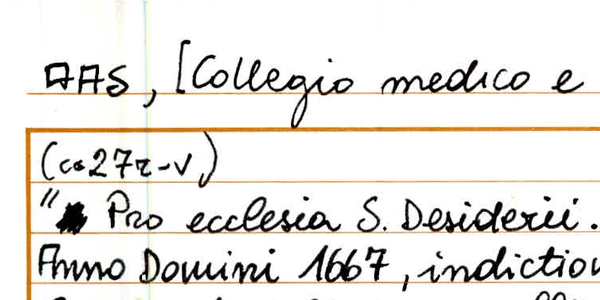 AAS, [Collegio medico e
(cc 27r-v)
" Pro ecclesia S. Desiderii.
Anno Domini 1667, indiction